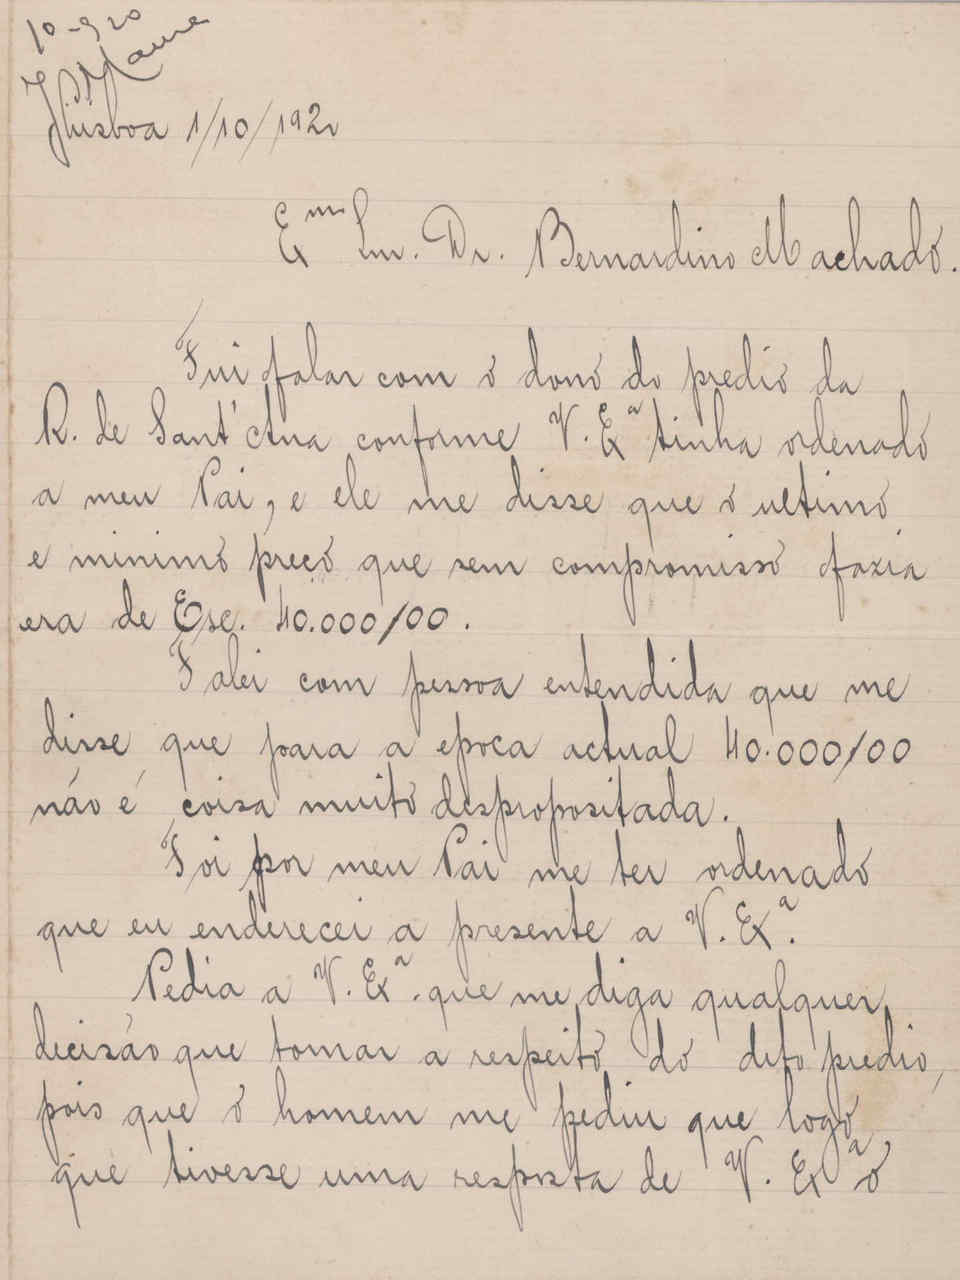 10-920
Lisboa 1/10/1920
Exmo Snr. Dr. Bernardino Machado.
Fui falar com o dono do predio da
R. de Sant'Ana conforme V. Exª tinha ordenado
a meu Pai, e ele me disse que o ultimo
e minimo preço que sem compromisso fazia
era de Esc. 40.000/00.
Falei com pessoa entendida que me
disse que para a epoca actual 40.000/00
não é coisa muito despropositada.
Foi por meu Pai me ter ordenado
que eu enderecei a presente a V. Exª.
Pedia a V. Exª. que me diga qualquer
decisão que tomar a respeito do dito predio,
pois que o homem me pediu que logo
que tivesse uma resposta de V. Exª o